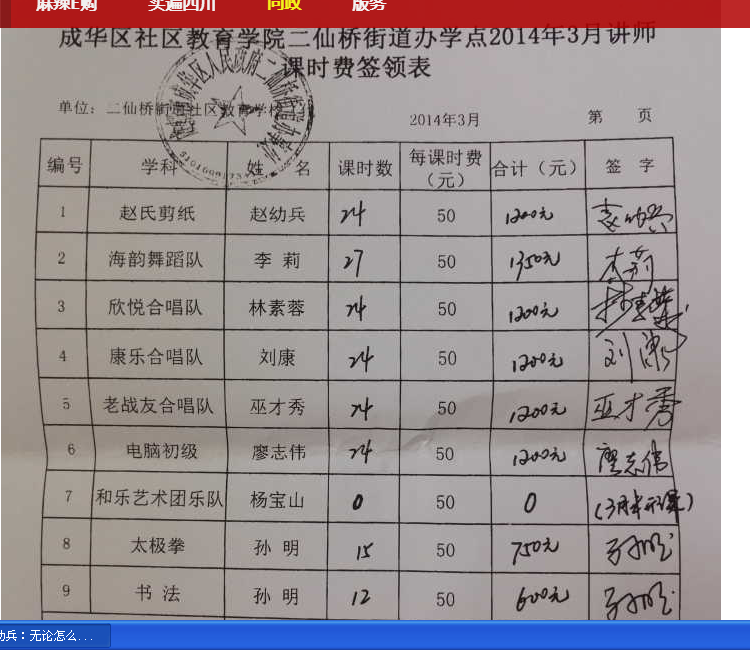 麻辣E购 买遍四川 问政 版务
成华区社区教育学院二仙桥街道办学点2014年3月讲师
课时费签领表
单位：二仙桥街道社区教育学校
2014年3月 第 页
编号 学科 姓 名 课时数 每课时费（元） 合计（元） 签 字
1 赵氏剪纸 赵幼兵 24 50 1200元
2 海韵舞蹈队 李 莉 27 50 1350元 李莉
3 欣悦合唱队 林素蓉 24 50 1200元 林素蓉
4 康乐合唱队 刘康 24 50 1200元 刘康
5 老战友合唱队 巫才秀 24 50 1200元 巫才秀
6 电脑初级 廖志伟 24 50 1200元 廖志伟
7 和乐艺术团乐队 杨宝山 0 50 0 (3月未上课)
8 太极拳 孙 明 15 50 750元 孙明
9 书 法 孙 明 12 50 600元 孙明
幼兵：无论怎么...